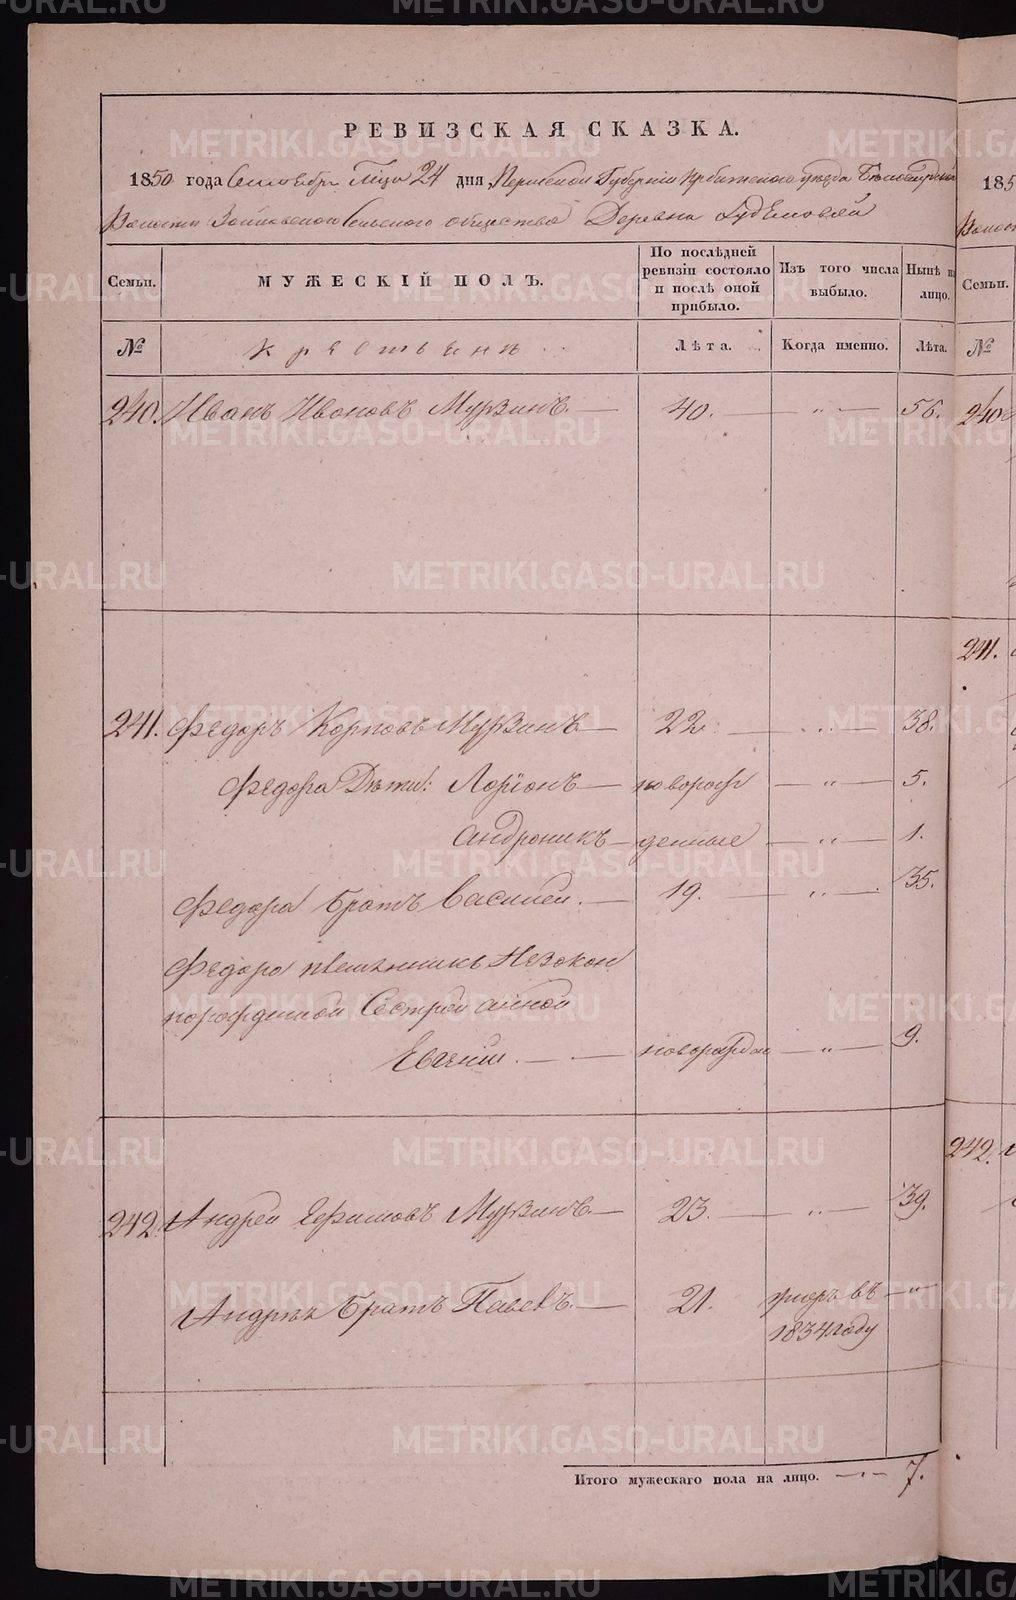 РЕВИЗСКАЯ СКАЗКА.
1850 года Сентября Мца 24 дня, Пермской Губернiи Ирбитскаго уѣзда Бѣлослудской
Волости Зайковскаго Сельскаго общества Деревни
Семьи.
МУЖЕСКIЙ ПОЛЪ.
По послѣдней ревизiи состояло и послѣ оной прибыло.
Изъ того числа выбыло.
Нынѣ на лицо.
№
Крестьяне
Лѣта.
Когда именно.
Лѣта.
240. Иванъ Ивановъ Мурзинъ. — 40. — „ — 56.
241. Федоръ Карповъ Мурзинъ — 22. — „ — 38.
Федора Дѣти: Ларiонъ — новорож — „ — 5.
Андроникъ — денные — „ — 1.
Федора братъ Василей. — 19. — „ — 35.
Федора племянникъ Незакон
норожденной Сестрой Анной
Евгенiй. — новорожден — „ — 9.
242. Андрей Ефимовъ Мурзинъ. — 23. — „ — 39.
Андрея братъ Павелъ. — 21. умеръ въ — „
1834 году
Итого мужескаго пола на лицо. — 7.
185
Волост
Семьи.
№
240
241.
242.
METRIKI.GASO-URAL.RU